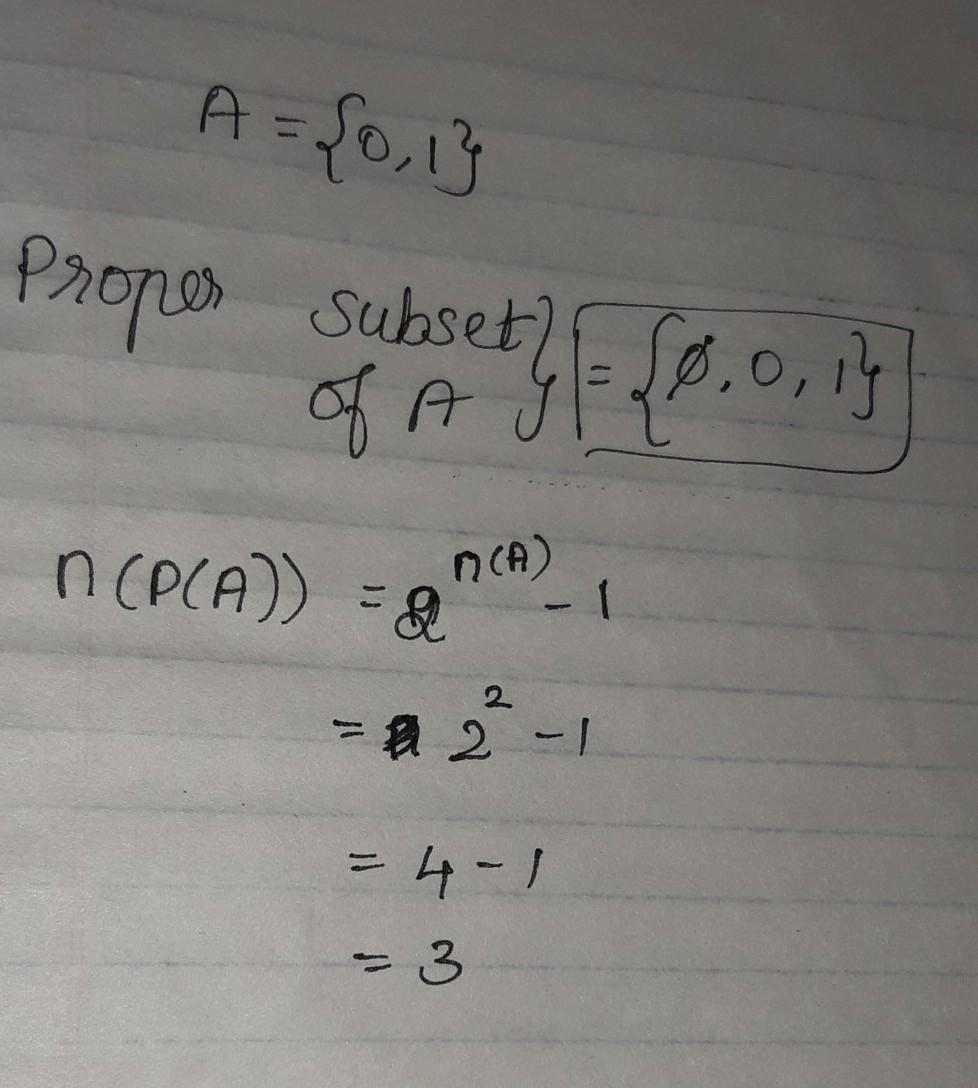 A = {0, 1}
Proper subset } = {ø, 0, 1}
of A
n(P(A)) = 2^n(A) - 1
= 2² - 1
= 4 - 1
= 3